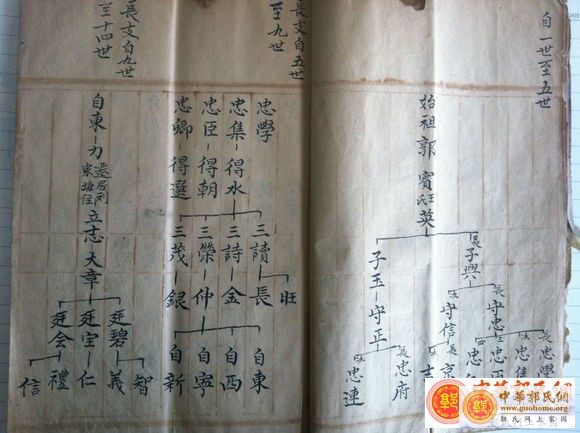 自一世至五世
始祖郭賓英
王氏
長子興
子玉
守正
長守忠
次守信
長忠學
次忠集
三忠臣
四忠
長京
次吉
長忠府
次忠連
長支自五世
至九世
忠學
忠集 得水
忠臣 得朝
忠卿 得選
三讀 長
旺
三詩 金
三榮 仲
三茂 銀
自東
自西
自宁
自新
長支自九世
至十四世
自東
立志 大章
廷碧
廷宝
廷会
智
義
仁
禮
信
中華郭氏網
www.guohome.org
郭氏網上家園